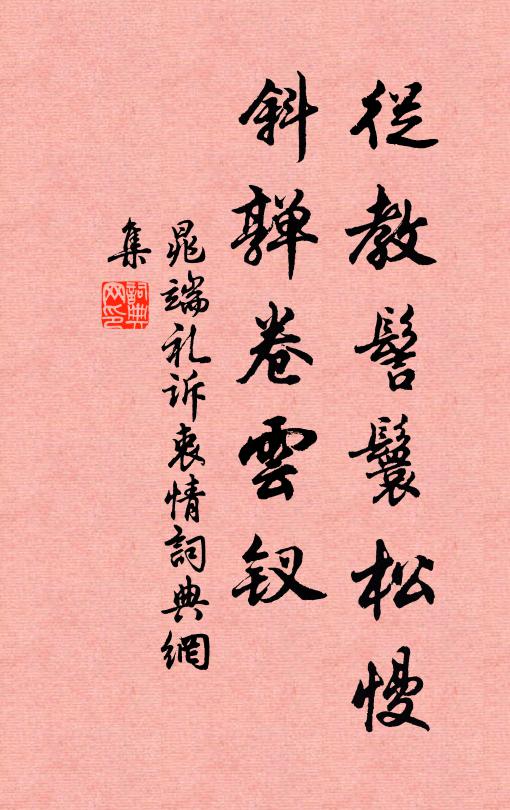 從教髻鬟松慢
斜亸卷雲釵
晁端礼诉衷情詞典網
集
詞典网印